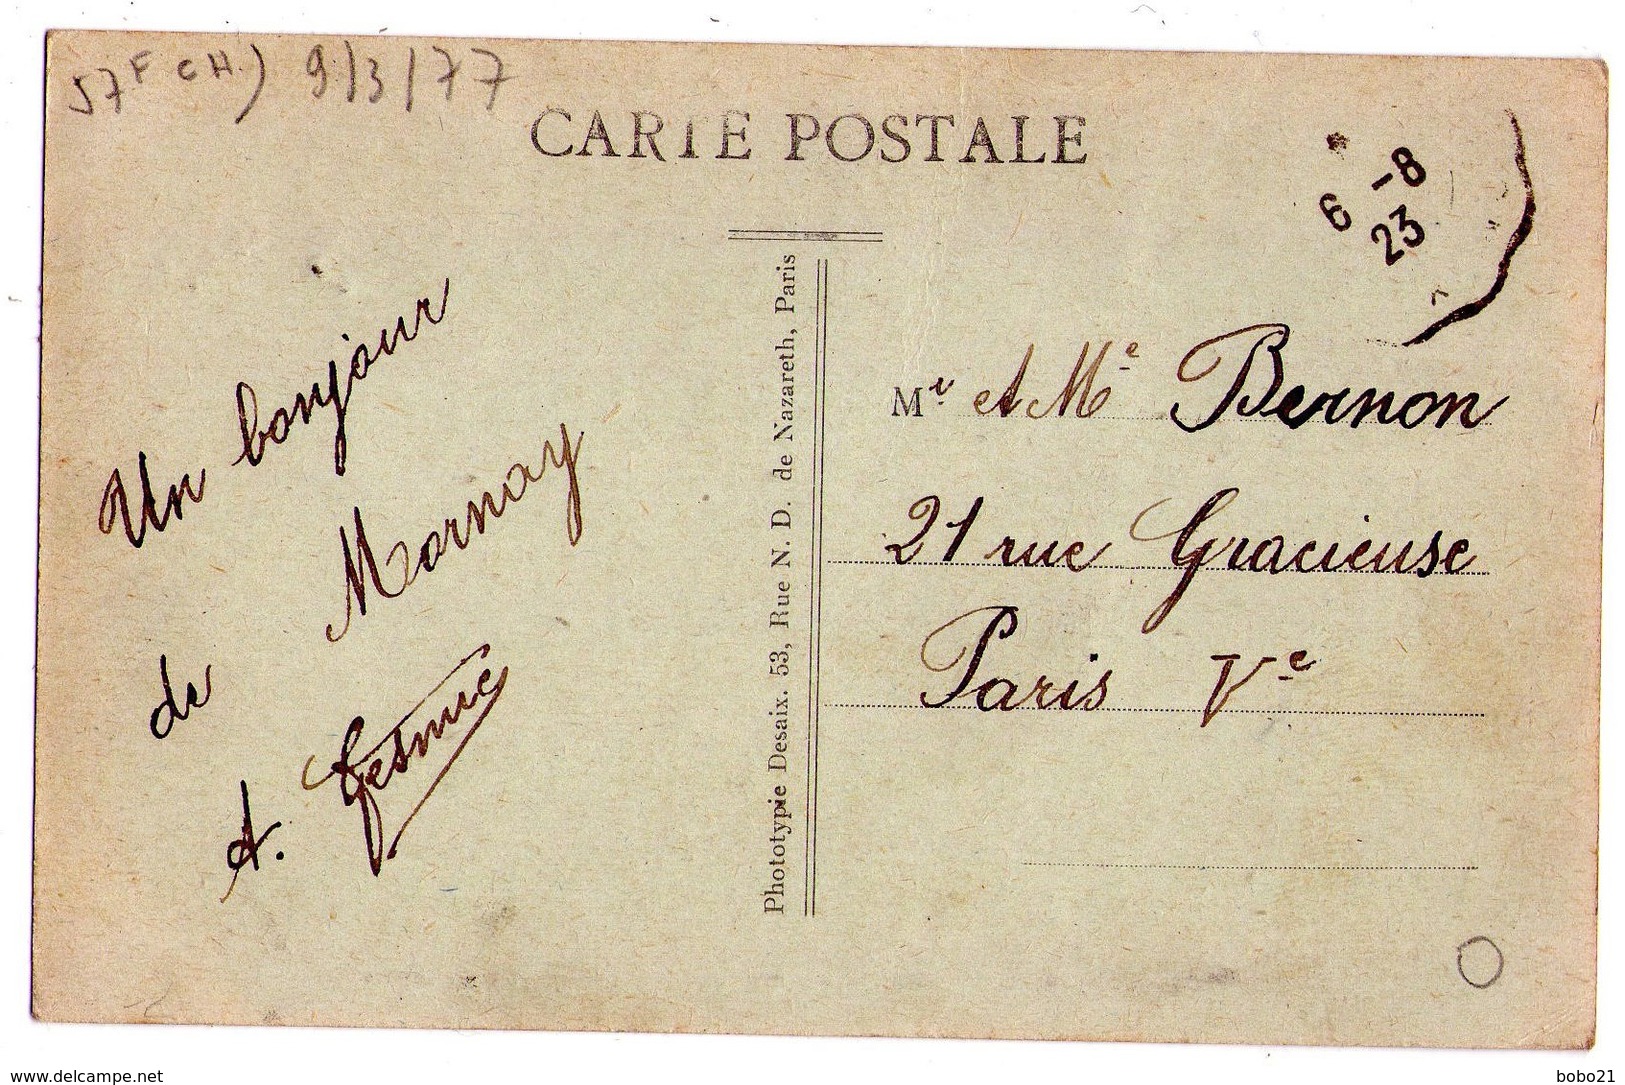 57 F CH) 9/3/77
CARTE POSTALE
6 -8
23
Un bonjour
de Mornay
A.
Phototypie Desaix. 53, Rue N. D. de Nazareth, Paris
Mr et Me Bernon
21 rue Gracieuse
Paris Ve
www.delcampe.net
bobo21